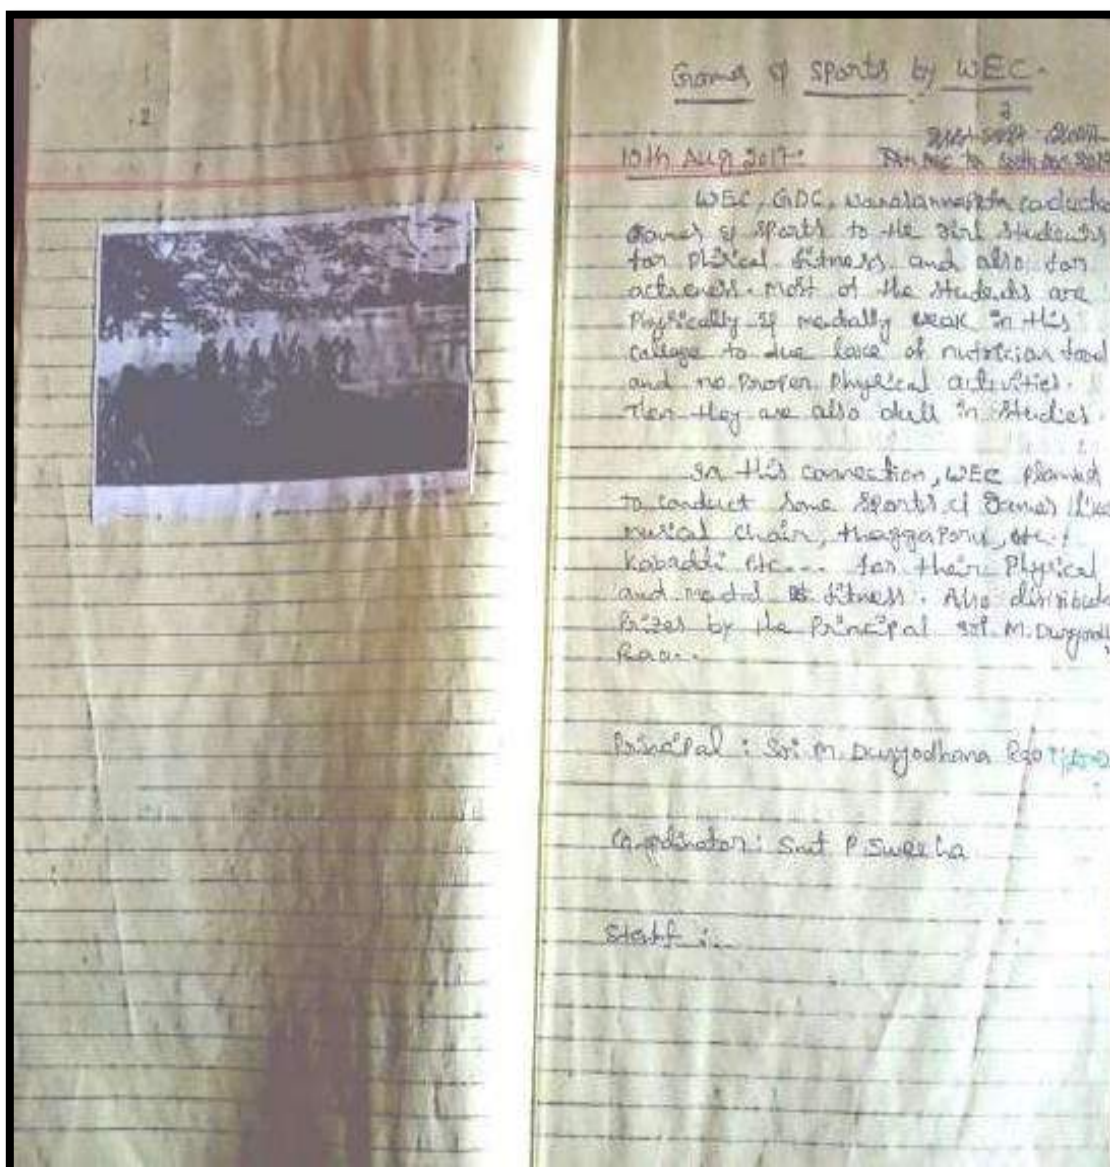 2
Games & Sports by WEC.
2
10th Aug 2017:
WEC, GDC, Narasannapeta conducted
Games & Sports to the Girl Students
for phisical fitness and also for
activeness. most of the students are
Physically & medally weak in this
college to due lack of nutrician food
and no Proper Physical activities.
Then they are also dull in studies.
In this connection, WEC planned
to conduct some Sports & Games like
musical chair, etc.,
Kabaddi etc... for their Physical
and medal fitness. Also distribute
Prizes by the Principal Sri. M. Duryodh
Rao..
Principal : Sri M. Duryodhana Rao
Co-ordinator : Smt P Swecha
Staff :..